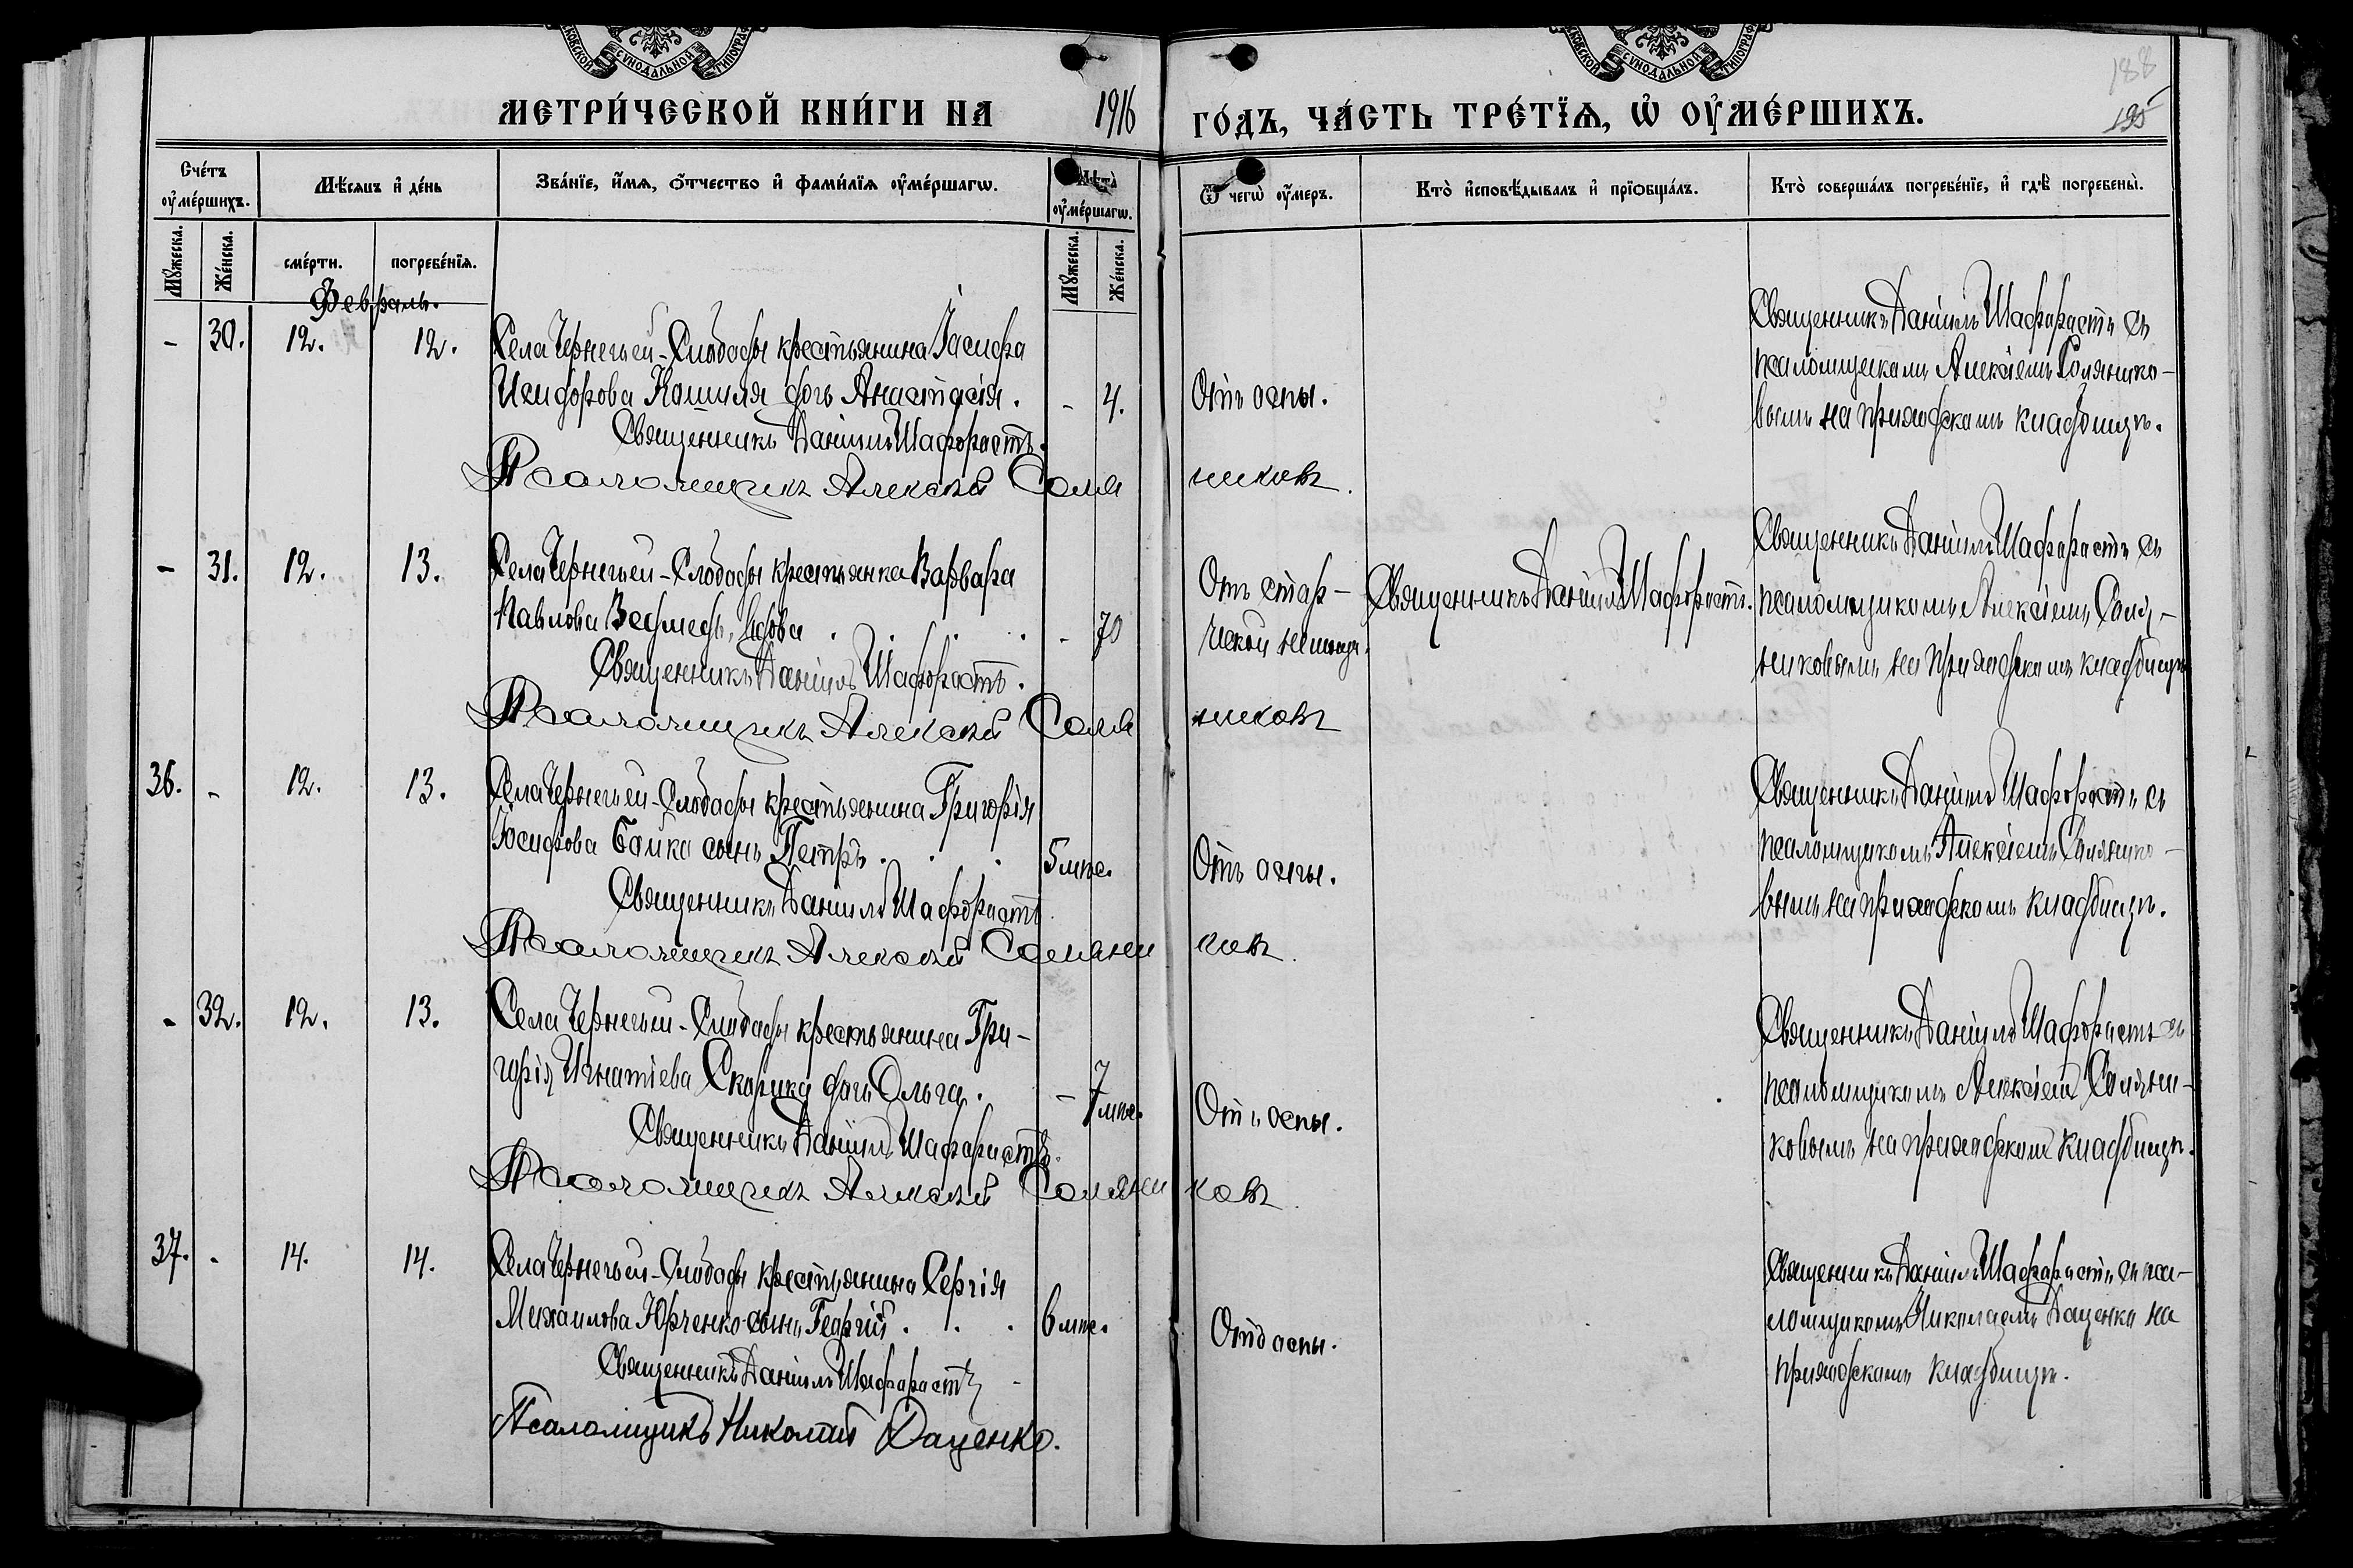 МОСКОВСКОЙ СУНОДАЛЬНОЙ ТИПОГРАФ
МОСКОВСКОЙ СУНОДАЛЬНОЙ ТИПОГРАФ
188
195
МЕТРИ́ЧЕСКОЙ КНИ́ГИ НА 1916 ГО́ДЪ, ЧА́СТЬ ТРЕ́ТЇѦ, Ѡ҆ ОУ҆МЕ́РШИХЪ.
Сче́тъ оу҆ме́ршихъ.
Мꙋ́жеска.
Же́нска.
Мѣ́сѧцъ и҆ де́нь
сме́рти.
погребе́нїѧ.
Зва́нїе, и҆́мѧ, ѻ҆́тчество и҆ фами́лїѧ оу҆ме́ршагѡ.
Лѣ́та оу҆ме́ршагѡ.
Мꙋ́жеска.
Же́нска.
Ѿ чегѡ̀ оу҆́меръ.
Кто̀ и҆сповѣ́дывалъ и҆ прїѡбща́лъ.
Кто̀ соверша́лъ погребе́нїе, и҆ гдѣ̀ погребены̀.
Февраль.
- 30. 12. 12.
Села Чернечьей-Слободы крестьянина Іосифа
Исидорова Кашиля дочь Анастасія. - 4.
Священникъ Даніилъ Шафорастъ.
Псаломщикъ Алексѣй Соляниковъ.
Отъ оспы.
Священникъ Даніилъ Шафорастъ съ
псаломщикомъ Алексіемъ Солянико-
вымъ на приходскомъ кладбищѣ.
- 31. 12. 13.
Села Чернечьей-Слободы крестьянка Варвара
Павлова Ведмедь, вдова . . . . - 70
Священникъ Даніилъ Шафорастъ.
Псаломщикъ Алексѣй Соляниковъ
Отъ стар-
ческой немощи.
Священникъ Даніилъ Шафорастъ.
Священникъ Даніилъ Шафорастъ съ
псаломщикомъ Алексіемъ Соля-
никовымъ на приходскомъ кладбищѣ
36. - 12. 13.
Села Чернечьей-Слободы крестьянина Григорія
Іосифова Бойко сынъ Петръ . . . 5 мѣс.
Священникъ Даніилъ Шафорастъ.
Псаломщикъ Алексѣй Соляниковъ.
Отъ оспы.
Священникъ Даніилъ Шафорастъ съ
псаломщикомъ Алексіемъ Солянико-
вымъ на приходскомъ кладбищѣ.
- 32. 12. 13.
Села Чернечьей-Слободы крестьянина Гри-
горія Игнатіева Скорика дочь Ольга. - 7 мѣс.
Священникъ Даніилъ Шафорастъ.
Псаломщикъ Алексѣй Соляниковъ.
Отъ оспы.
Священникъ Даніилъ Шафорастъ съ
псаломщикомъ Алексіемъ Соляни-
ковымъ на приходскомъ кладбищѣ.
37. - 14. 14.
Села Чернечьей-Слободы крестьянина Сергія
Михаилова Юрченко сынъ Георгій . . . 6 мѣс.
Священникъ Даніилъ Шафорастъ
Псаломщикъ Николай Даценко.
Отъ оспы.
Священникъ Даніилъ Шафорастъ съ пса-
ломщикомъ Николаемъ Даценко на
приходскомъ кладбищѣ.